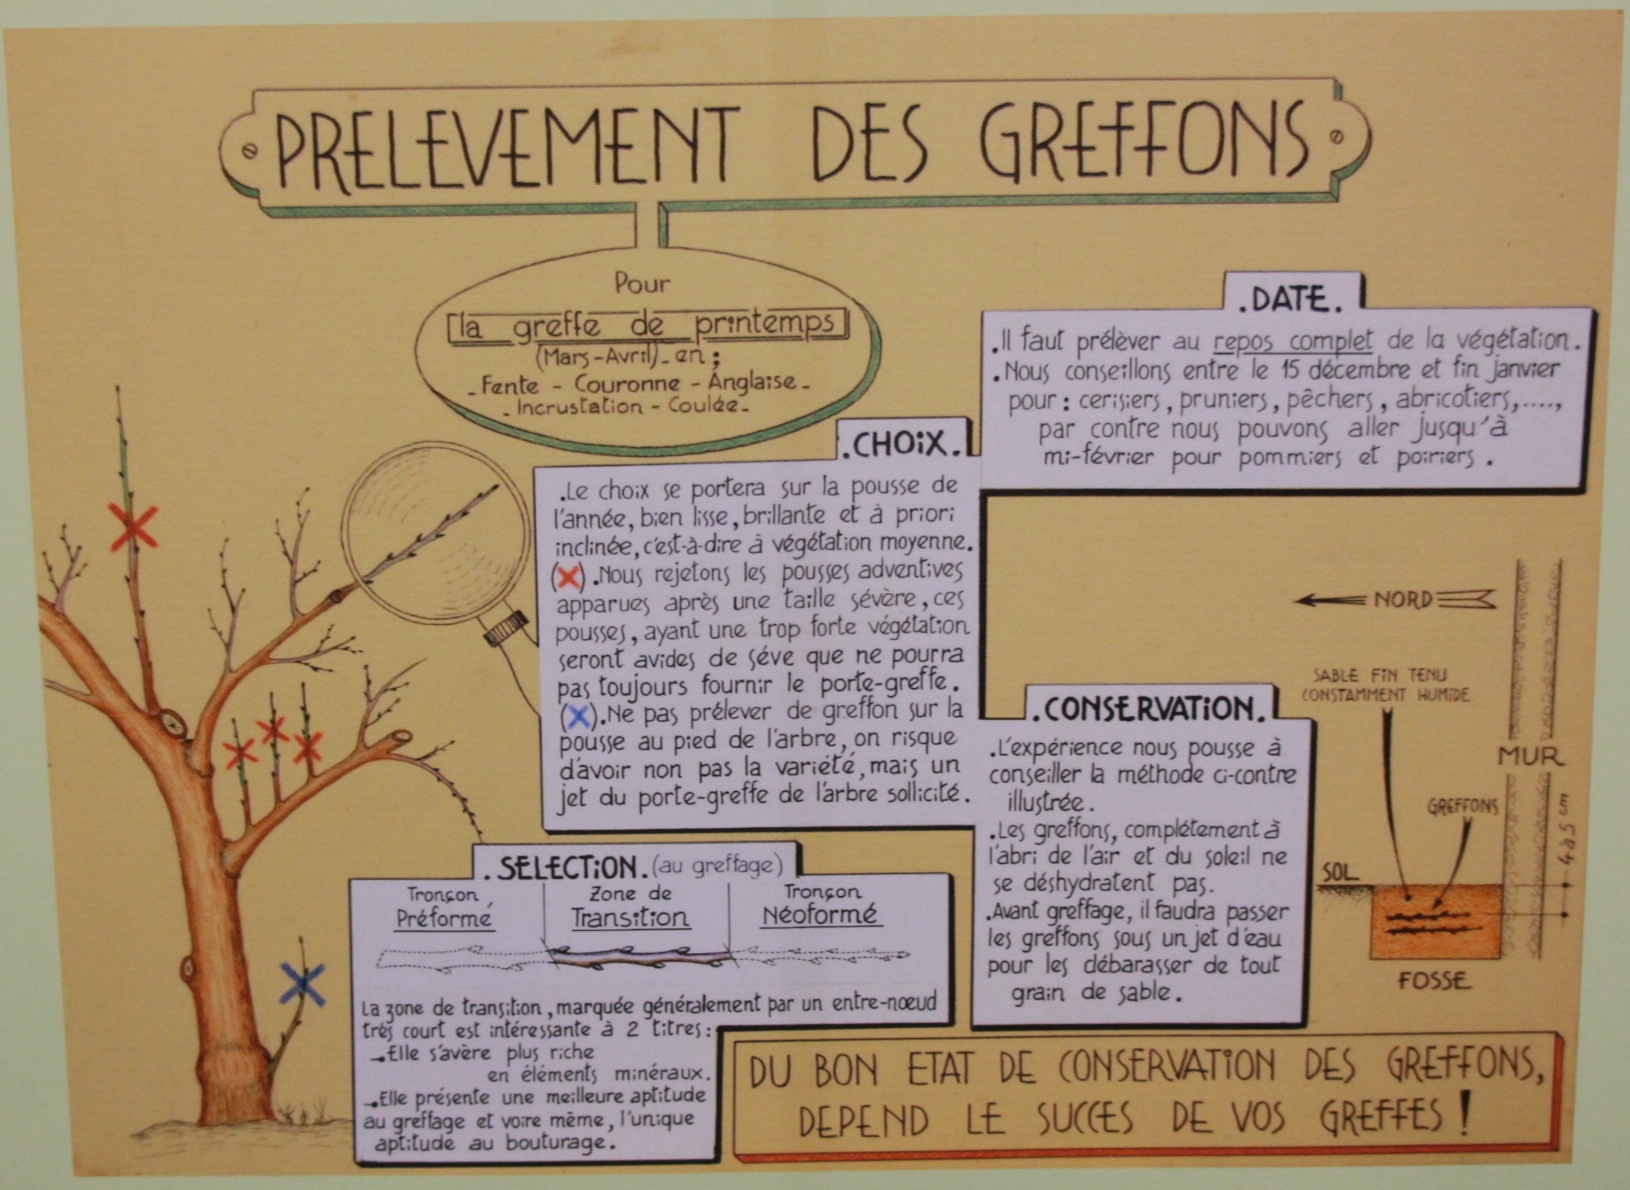 PRELEVEMENT DES GREFFONS
Pour
la greffe de printemps
(Mars-Avril)_en;
_Fente - Couronne - Anglaise_
_Incrustation - Coulée_
.DATE.
.Il faut prélèver au repos complet de la végétation.
.Nous conseillons entre le 15 décembre et fin janvier
pour: cerisiers, pruniers, pêchers, abricotiers,....,
par contre nous pouvons aller jusqu'à
mi-février pour pommiers et poiriers.
.CHOIX.
.Le choix se portera sur la pousse de
l'année, bien lisse, brillante et à priori
inclinée, c'est-à-dire à végétation moyenne.
(X).Nous rejetons les pousses adventives
apparues après une taille sévère, ces
pousses, ayant une trop forte végétation
seront avides de séve que ne pourra
pas toujours fournir le porte-greffe.
(X).Ne pas prélever de greffon sur la
pousse au pied de l'arbre, on risque
d'avoir non pas la variété, mais un
jet du porte-greffe de l'arbre sollicité.
.CONSERVATION.
.L'expérience nous pousse à
conseiller la méthode ci-contre
illustrée.
.Les greffons, complétement à
l'abri de l'air et du soleil ne
se déshydratent pas.
.Avant greffage, il faudra passer
les greffons sous un jet d'eau
pour les débarasser de tout
grain de sable.
NORD
SABLE FIN TENU
CONSTAMMENT HUMIDE
MUR
GREFFONS
4 à 5 cm
SOL
FOSSE
.SELECTION. (au greffage)
Tronçon Préformé
Zone de Transition
Tronçon Néoformé
La zone de transition, marquée généralement par un entre-nœud
très court est intéressante à 2 titres:
→Elle s'avère plus riche
en éléments minéraux.
→Elle présente une meilleure aptitude
au greffage et voire même, l'unique
aptitude au bouturage.
DU BON ETAT DE CONSERVATION DES GREFFONS,
DEPEND LE SUCCES DE VOS GREFFES!